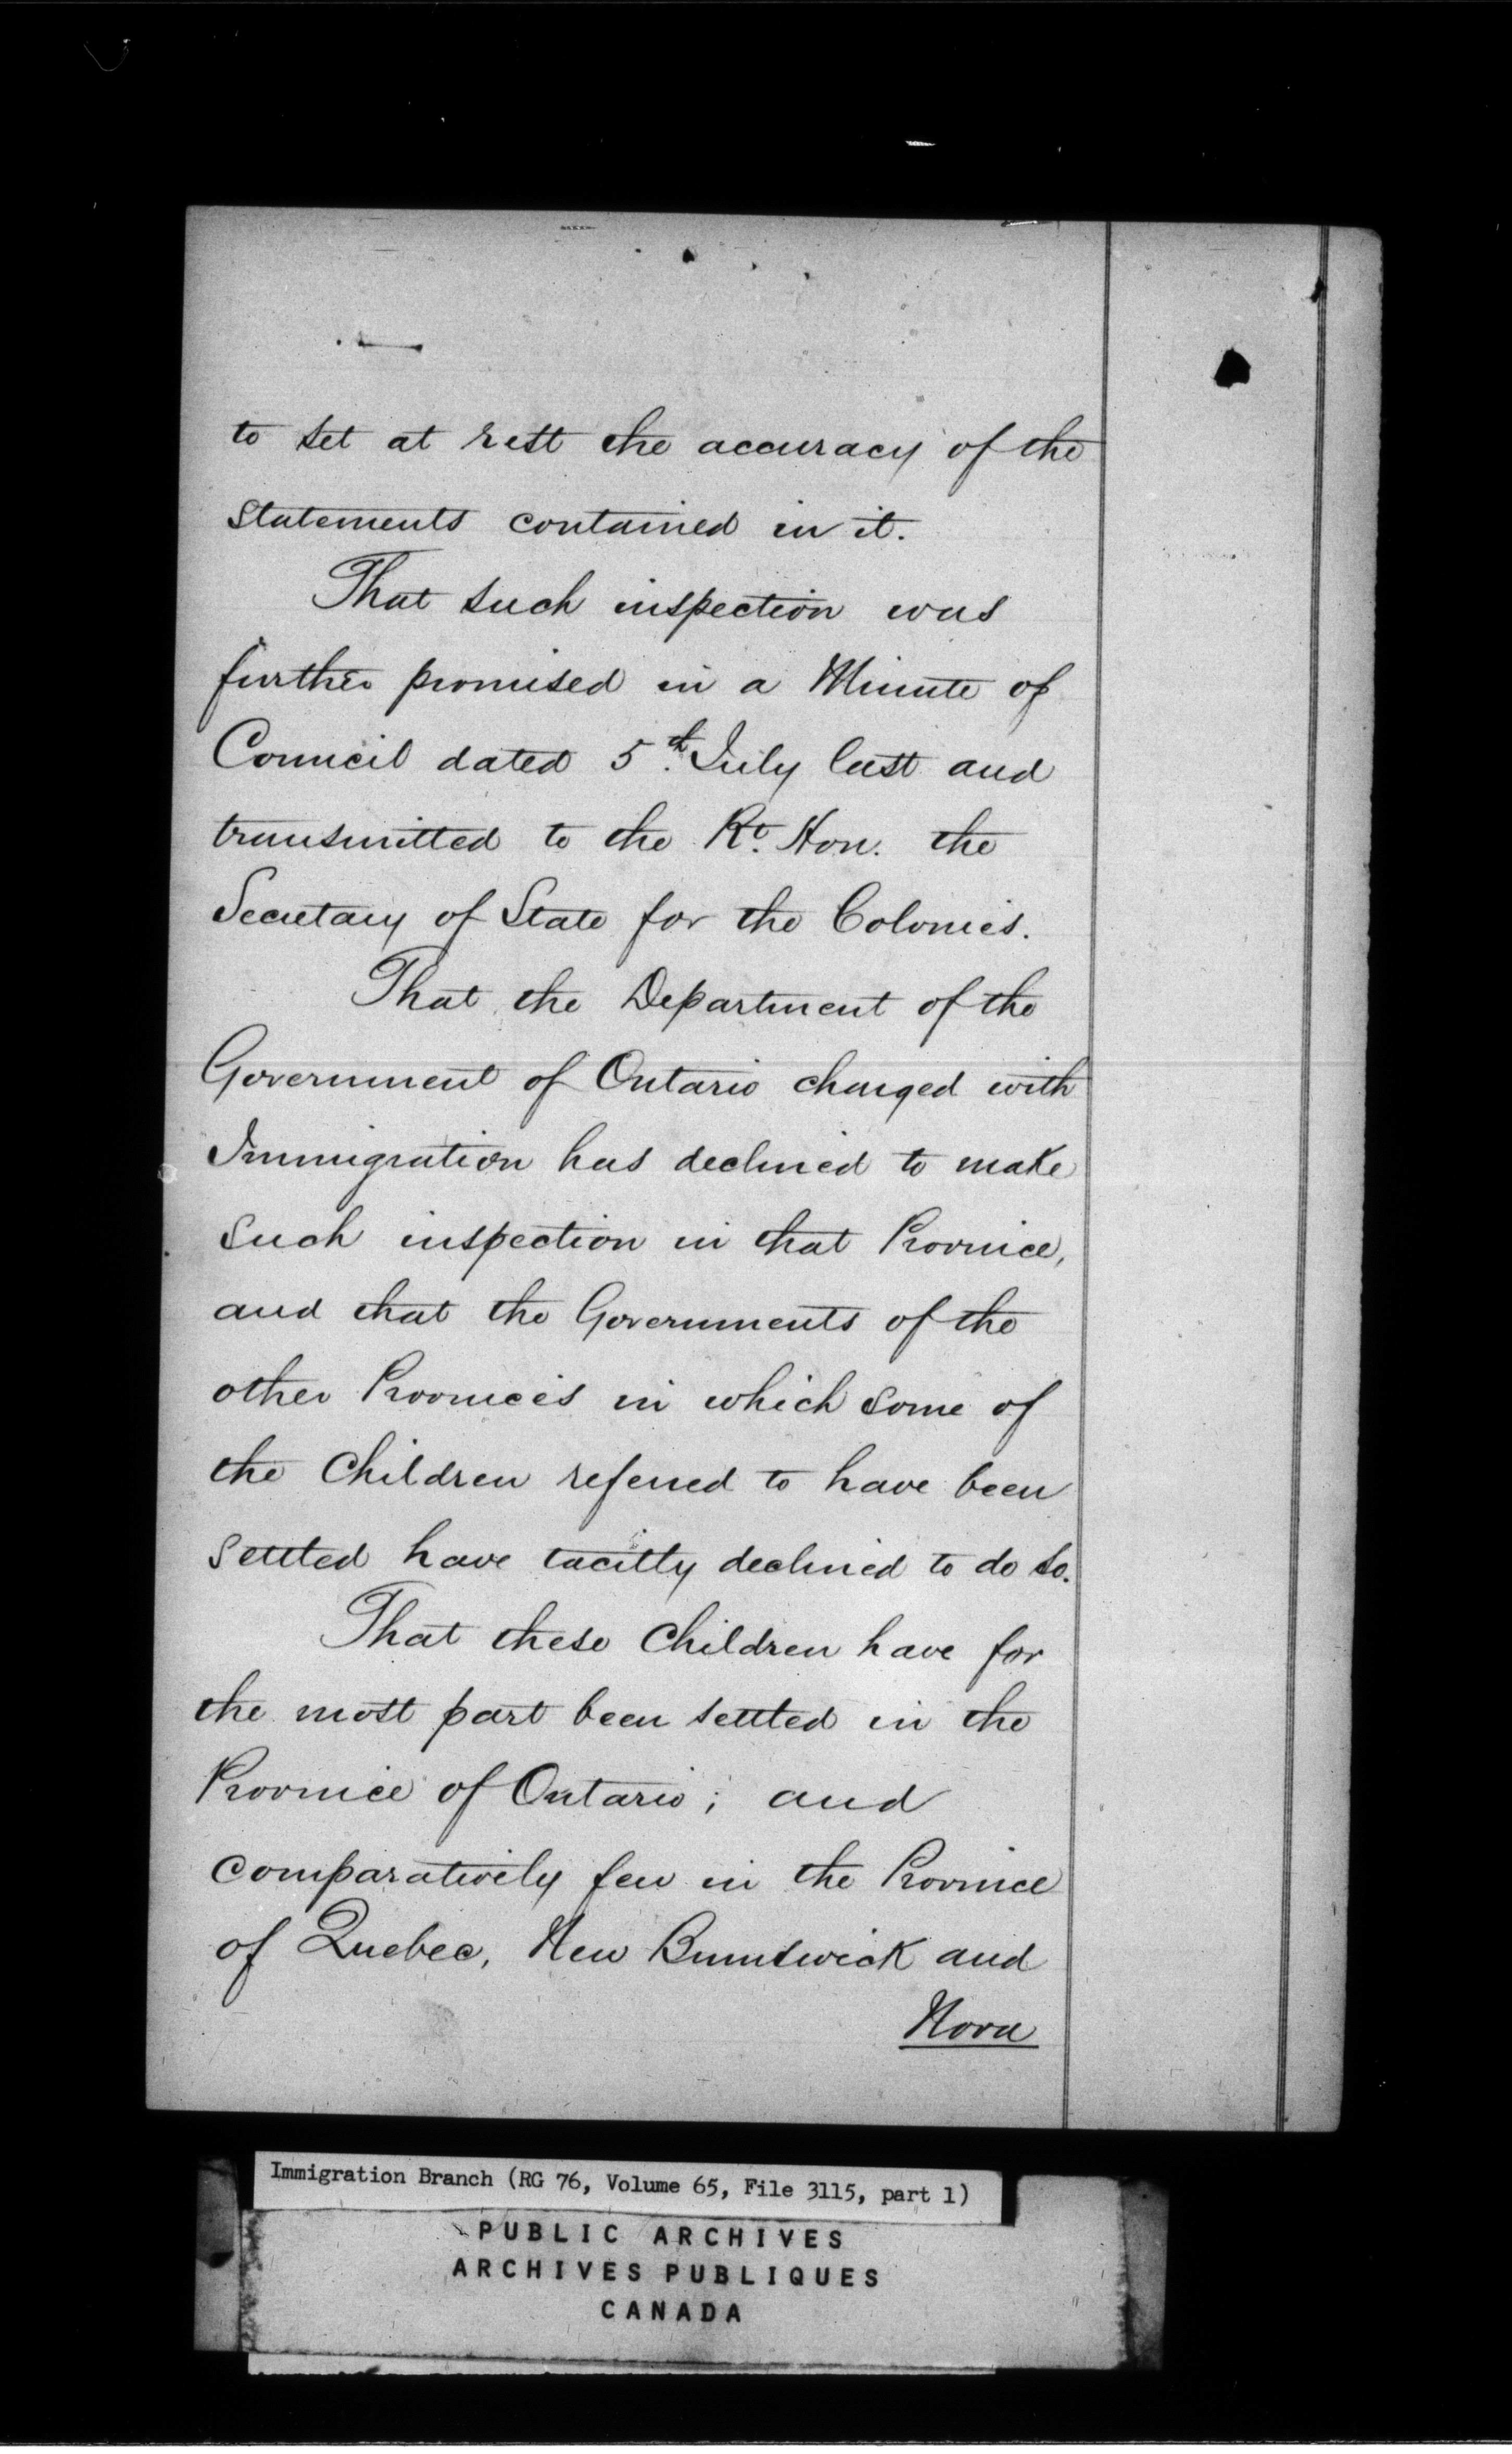 to set at rest the accuracy of the
statements contained in it.
That such inspection was
further promised in a Minute of
Council dated 5th. July last and
transmitted to the Rt. Hon. the
Secretary of State for the Colonies.
That the Department of the
Government of Ontario charged with
Immigration has declined to make
such inspection in that Province,
and that the Governments of the
other Provinces in which some of
the Children referred to have been
settled have tacitly declined to do so.
That these Children have for
the most part been settled in the
Province of Ontario; and
comparatively few in the Province
of Quebec, New Brunswick and
Nova
Immigration Branch (RG 76, Volume 65, File 3115, part 1)
PUBLIC ARCHIVES
ARCHIVES PUBLIQUES
CANADA